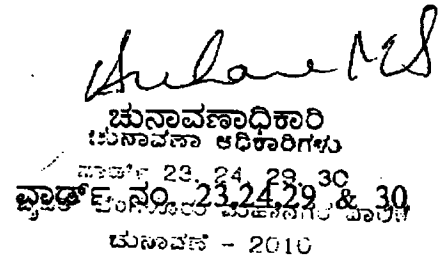 ಚುನಾವಣಾಧಿಕಾರಿ
ಚುನಾವಣಾ ಅಧಿಕಾರಿಗಳು
ವಾರ್ಡ್ 23, 24, 29, 30
ವಾರ್ಡ್ ನಂ. 23,24,29 & 30
ಮಹಾನಗರ
ಚುನಾವಣೆ - 2010